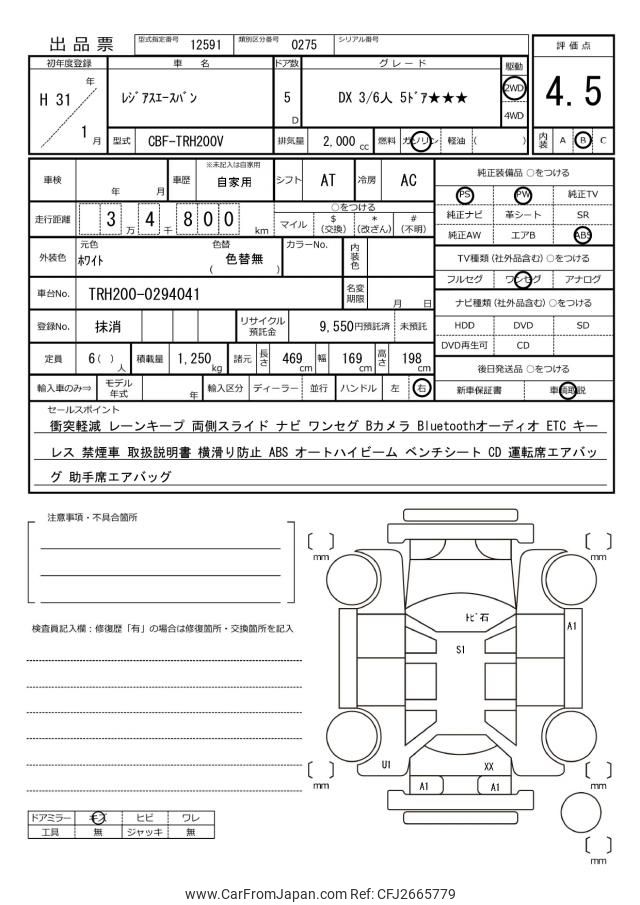 出品票 型式指定番号 12591 類別区分番号 0275 シリアル番号
評価点
4.5
内装 A B C
初年度登録 車名 ドア数 グレード 駆動
H 31 年 1 月 ﾚｼﾞｱｽｴｰｽﾊﾞﾝ 5 D DX 3/6人 5ﾄﾞｱ★★★ 2WD
4WD
型式 CBF-TRH200V 排気量 2,000 cc 燃料 ガソリン 軽油 ( )
車検 年 月 車歴 ※未記入は自家用 自家用 シフト AT 冷房 AC
走行距離 3 万 4 千 8 0 0 km
○をつける
マイル $(交換) *(改ざん) #(不明)
外装色 元色 ﾎﾜｲﾄ 色替 ( 色替無 ) カラーNo. 内装色
車台No. TRH200-0294041 名変期限 月 日
登録No. 抹消 リサイクル預託金 9,550円預託済 未預託
定員 6 ( ) 人 積載量 1,250 kg 諸元 長さ 469 cm 幅 169 cm 高さ 198 cm
輸入車のみ⇒ モデル年式 年 輸入区分 ディーラー 並行 ハンドル 左 右
純正装備品 ○をつける
PS PW 純正TV
純正ナビ 革シート SR
純正AW エアB ABS
TV種類 (社外品含む) ○をつける
フルセグ ワンセグ アナログ
ナビ種類 (社外品含む) ○をつける
HDD DVD SD
DVD再生可 CD
後日発送品 ○をつける
新車保証書 車輌取説
セールスポイント
衝突軽減 レーンキープ 両側スライド ナビ ワンセグ Bカメラ Bluetoothオーディオ ETC キー
レス 禁煙車 取扱説明書 横滑り防止 ABS オートハイビーム ベンチシート CD 運転席エアバッ
グ 助手席エアバッグ
注意事項・不具合箇所
検査員記入欄：修復歴「有」の場合は修復箇所・交換箇所を記入
ドアミラー キズ ヒビ ワレ
工具 無 ジャッキ 無
mm
mm
ﾄﾋﾞ石
A1
S1
U1
XX
A1
A1
mm
mm
mm
www.CarFromJapan.com Ref: CFJ2665779